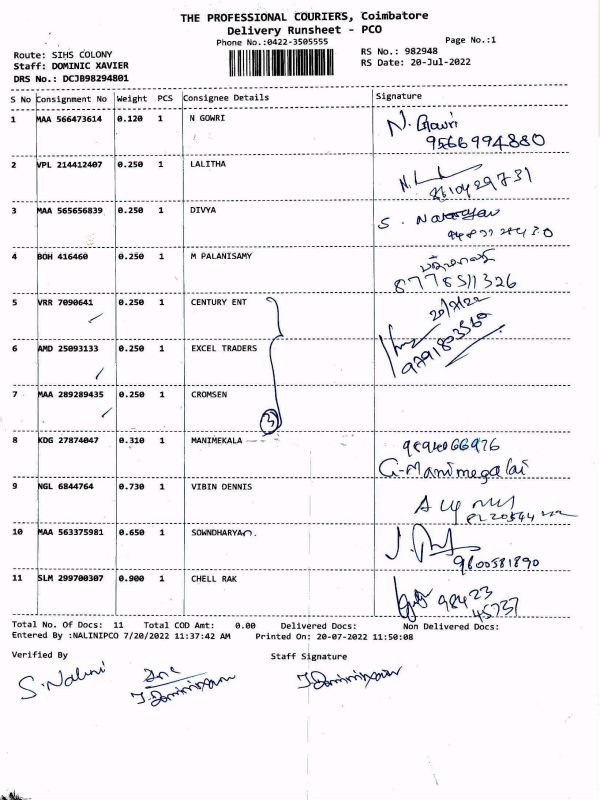 THE PROFESSIONAL COURIERS, Coimbatore
Delivery Runsheet - PCO
Phone No.:0422-3505555
Page No.:1
Route: SIHS COLONY
RS No.: 982948
Staff: DOMINIC XAVIER
RS Date: 20-Jul-2022
DRS No.: DCJB98294801
S No Consignment No Weight PCS Consignee Details Signature
1 MAA 566473614 0.120 1 N GOWRI N. Gowri
9566994880
2 VPL 214412407 0.250 1 LALITHA
8610429731
3 MAA 565656839 0.250 1 DIVYA S.
4 BOH 416460 0.250 1 M PALANISAMY
8778511326
5 VRR 7090641 0.250 1 CENTURY ENT 20/7/22
9791803560
6 AMD 25093133 0.250 1 EXCEL TRADERS
7 MAA 289289435 0.250 1 CROMSEN
3
8 KDG 27874047 0.310 1 MANIMEKALA
G-Manimegalai
9 NGL 6844764 0.730 1 VIBIN DENNIS
10 MAA 563375981 0.650 1 SOWNDHARYAn.
9600581890
11 SLM 299700307 0.900 1 CHELL RAK
98423
45737
Total No. Of Docs: 11 Total COD Amt: 0.00 Delivered Docs: Non Delivered Docs:
Entered By :NALINIPCO 7/20/2022 11:37:42 AM Printed On: 20-07-2022 11:50:08
Verified By Staff Signature
S.Nalini